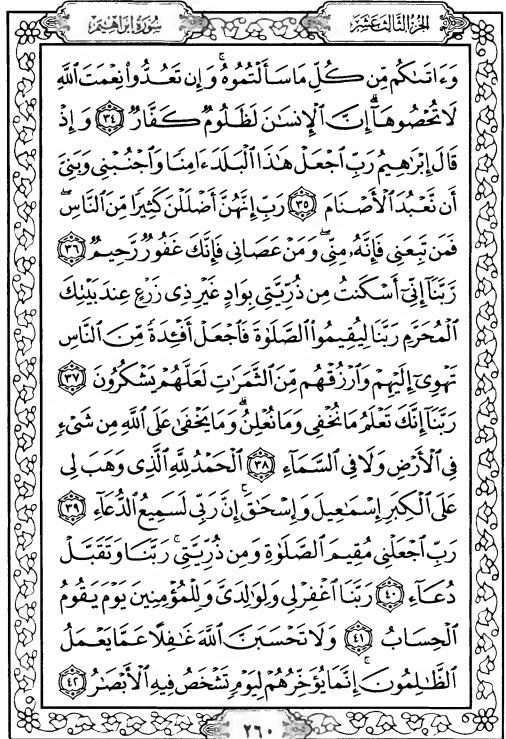 سورة ابراهيم
الجزء الثالث عشر
وَءَاتَىٰكُم مِّن كُلِّ مَا سَأَلْتُمُوهُ ۚ وَإِن تَعُدُّوا۟ نِعْمَتَ ٱللَّهِ
لَا تُحْصُوهَآ ۗ إِنَّ ٱلْإِنسَـٰنَ لَظَلُومٌ كَفَّارٌ ٣٤ وَإِذْ
قَالَ إِبْرَٰهِيمُ رَبِّ ٱجْعَلْ هَـٰذَا ٱلْبَلَدَ ءَامِنًا وَٱجْنُبْنِى وَبَنِىَّ
أَن نَّعْبُدَ ٱلْأَصْنَامَ ٣٥ رَبِّ إِنَّهُنَّ أَضْلَلْنَ كَثِيرًا مِّنَ ٱلنَّاسِ ۖ
فَمَن تَبِعَنِى فَإِنَّهُۥ مِنِّى ۖ وَمَنْ عَصَانِى فَإِنَّكَ غَفُورٌ رَّحِيمٌ ٣٦
رَّبَّنَآ إِنِّىٓ أَسْكَنتُ مِن ذُرِّيَّتِى بِوَادٍ غَيْرِ ذِى زَرْعٍ عِندَ بَيْتِكَ
ٱلْمُحَرَّمِ رَبَّنَا لِيُقِيمُوا۟ ٱلصَّلَوٰةَ فَٱجْعَلْ أَفْـِٔدَةً مِّنَ ٱلنَّاسِ
تَهْوِىٓ إِلَيْهِمْ وَٱرْزُقْهُم مِّنَ ٱلثَّمَرَٰتِ لَعَلَّهُمْ يَشْكُرُونَ ٣٧
رَبَّنَآ إِنَّكَ تَعْلَمُ مَا نُخْفِى وَمَا نُعْلِنُ ۗ وَمَا يَخْفَىٰ عَلَى ٱللَّهِ مِن شَىْءٍ
فِى ٱلْأَرْضِ وَلَا فِى ٱلسَّمَآءِ ٣٨ ٱلْحَمْدُ لِلَّهِ ٱلَّذِى وَهَبَ لِى
عَلَى ٱلْكِبَرِ إِسْمَـٰعِيلَ وَإِسْحَـٰقَ ۚ إِنَّ رَبِّى لَسَمِيعُ ٱلدُّعَآءِ ٣٩
رَبِّ ٱجْعَلْنِى مُقِيمَ ٱلصَّلَوٰةِ وَمِن ذُرِّيَّتِى ۚ رَبَّنَا وَتَقَبَّلْ
دُعَآءِ ٤٠ رَبَّنَا ٱغْفِرْ لِى وَلِوَٰلِدَىَّ وَلِلْمُؤْمِنِينَ يَوْمَ يَقُومُ
ٱلْحِسَابُ ٤١ وَلَا تَحْسَبَنَّ ٱللَّهَ غَـٰفِلًا عَمَّا يَعْمَلُ
ٱلظَّـٰلِمُونَ ۚ إِنَّمَا يُؤَخِّرُهُمْ لِيَوْمٍ تَشْخَصُ فِيهِ ٱلْأَبْصَـٰرُ ٤٢
٢٦٠